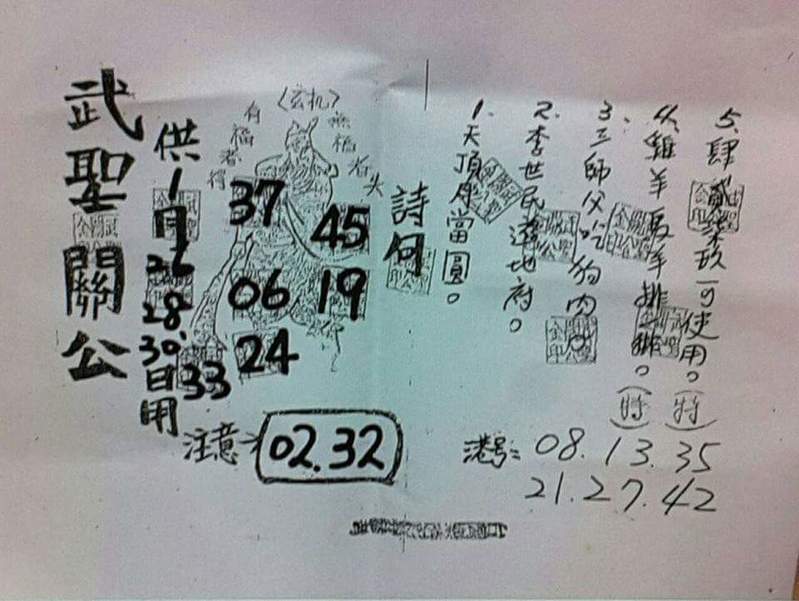 武聖關公
供1月26.28.30日用
〈玄机〉
有福者得
無福者失
37
45
06
19
24
33
注意
02.32
詩句
1.天頂月當圓。
2.李世民遊地府。
3.三師父吃狗肉
4.雞羊
排
。(特)
5.肆貳柒玖可使用。(特)
港号:08.13.35
21.27.42